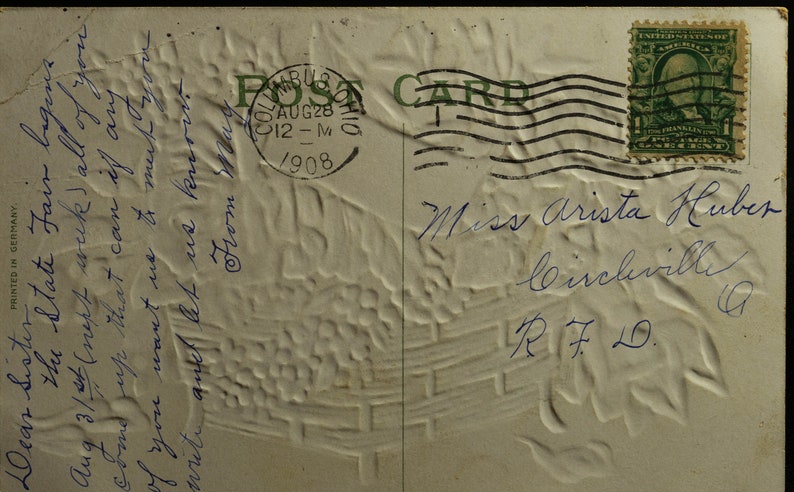 POST CARD
COLUMBUS, OHIO
AUG 28
12-M
1908
1
SERIES 1902
UNITED STATES OF
AMERICA
1
1
1706 FRANKLIN 1790
POSTAGE
ONE CENT
PRINTED IN GERMANY
Dear Sister
the State Fair begins
Aug 31st (next week) all of you
come up that can if any
of you want us to meet you
write and let us know.
From May
Miss Arista Huber
Circleville
O
R. F. D.